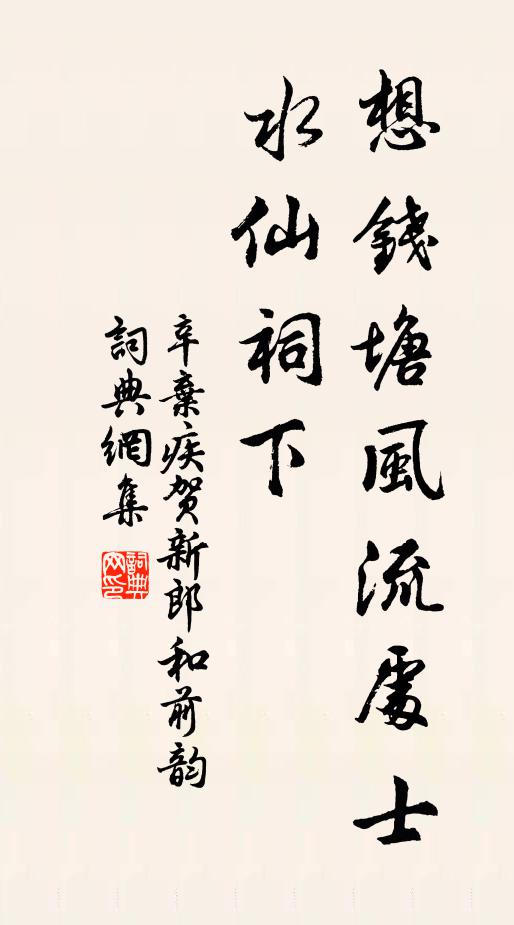 想錢塘風流處士
水仙祠下
辛棄疾賀新郎和前韵
詞典網集
詞典网印